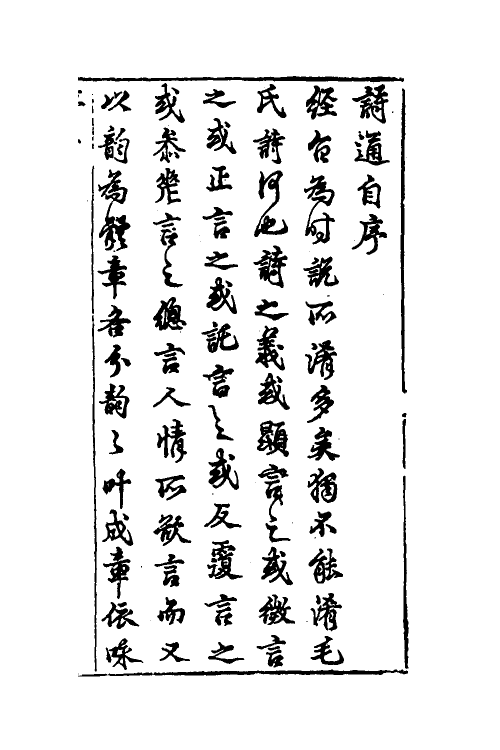 詩通自序
經旨為时說所淆多矣獨不能淆毛
氏詩何也詩之義或顯言之或微言
之或正言之或託言之或反覆言之
或叅差言之總言人情所欲言而又
以韵為體章各分韵々叶成章依咏